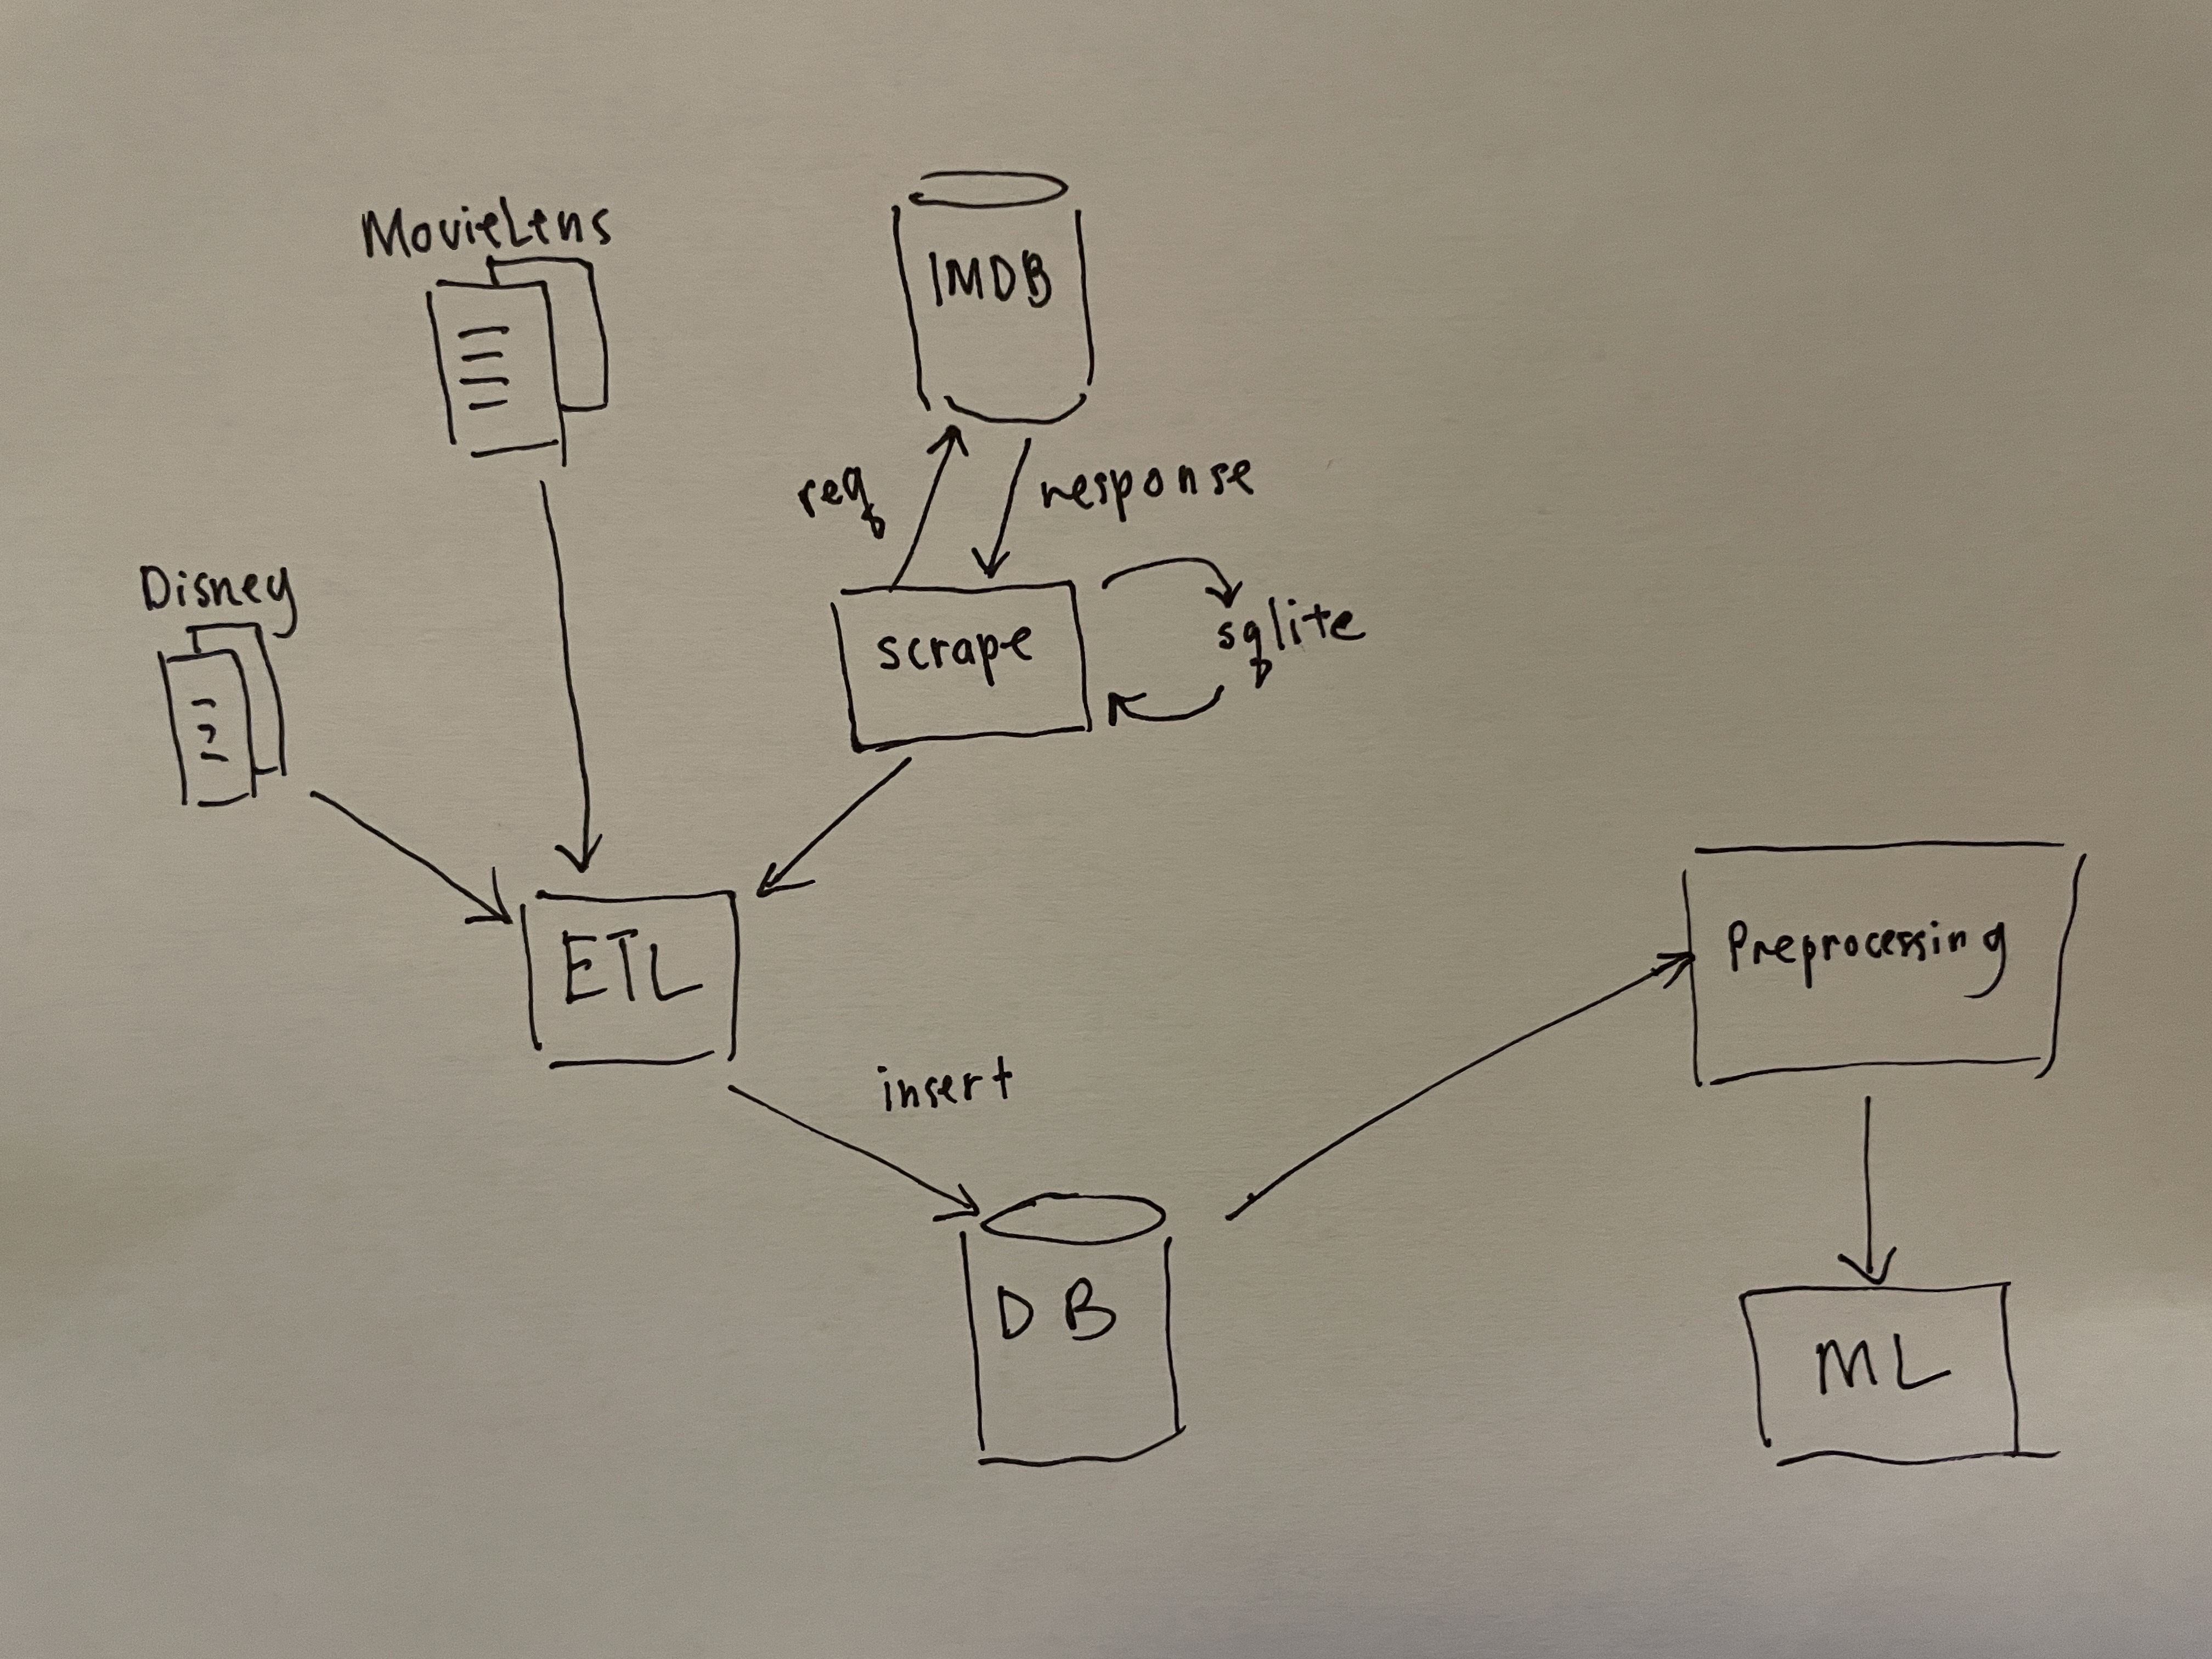 MovieLens
IMDB
req
response
Disney
scrape
sqlite
ETL
insert
Preprocessing
DB
ML